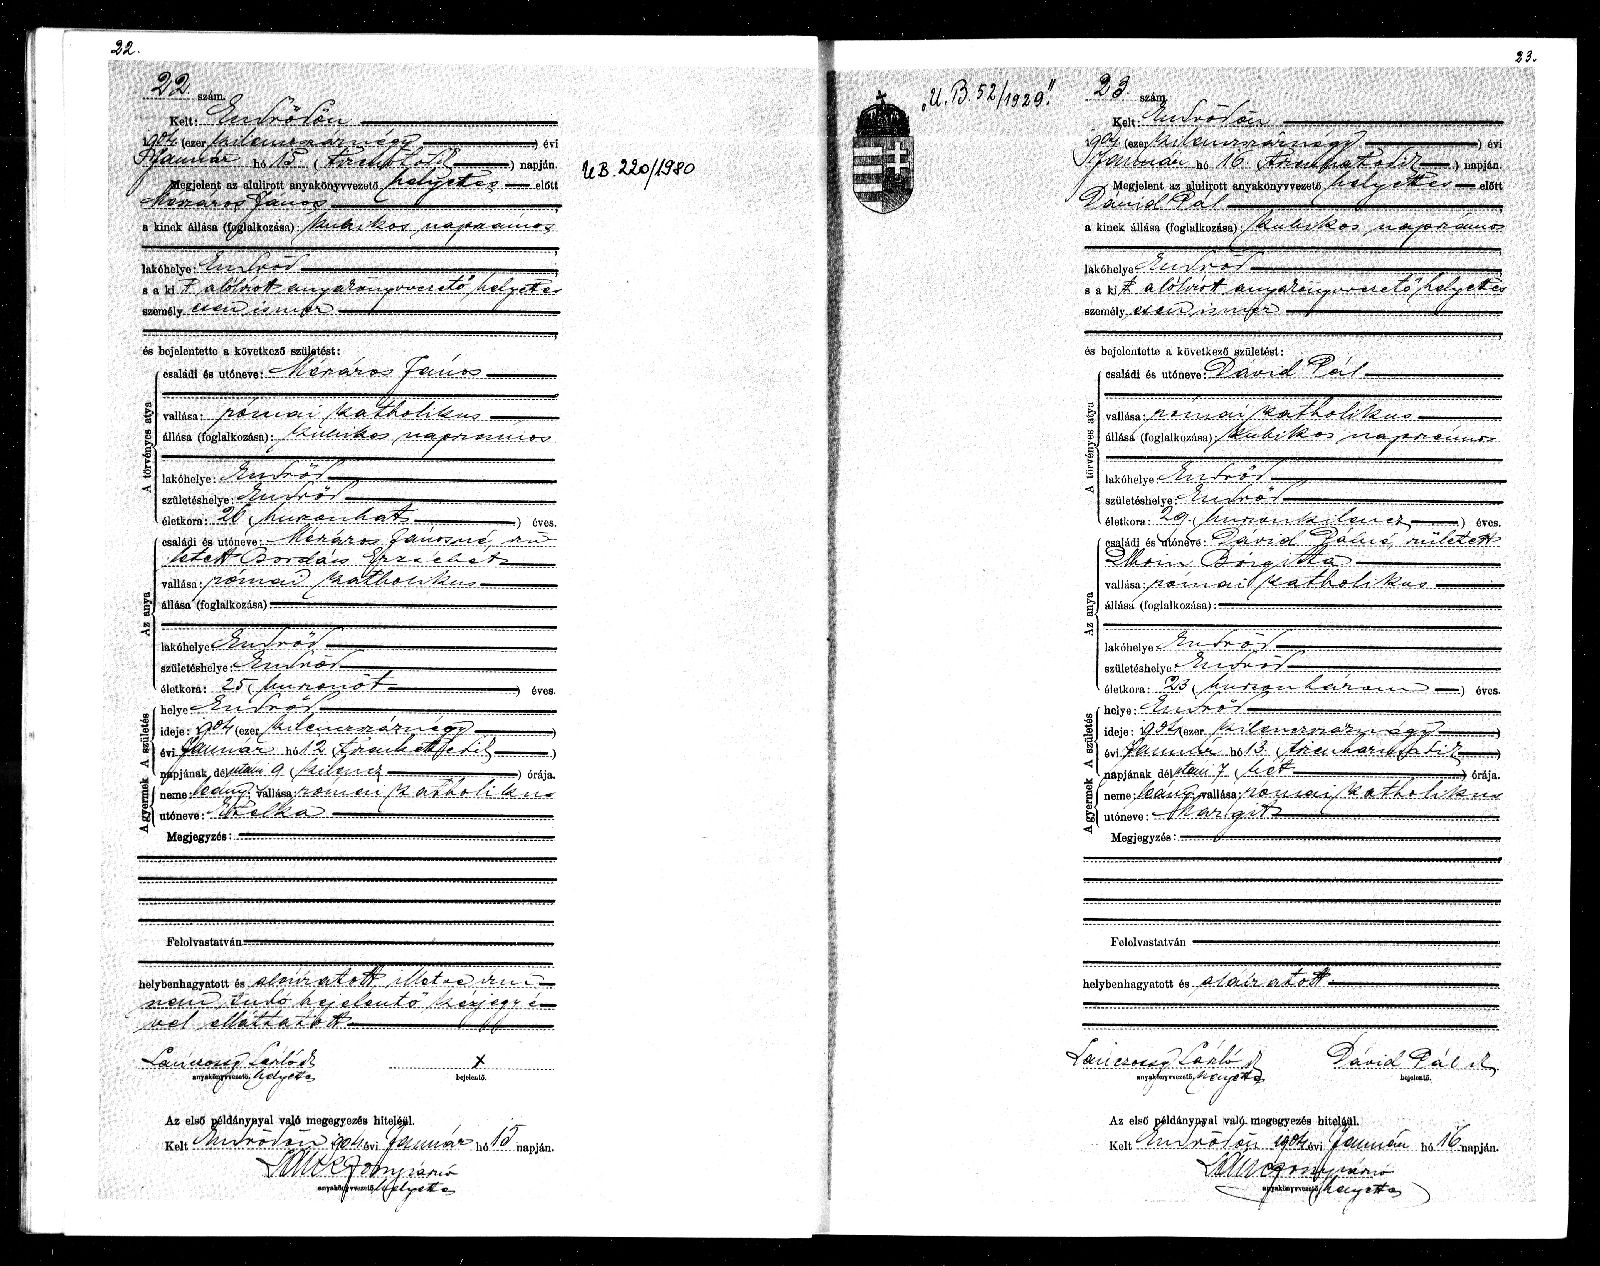 22.
22 szám.
Kelt: Endrődön
1904 (ezer kilenczszáznégy) évi
Január hó 15 (tizenötödik) napján.
Megjelent az alulirott anyakönyvvezető helyettes előtt
Mészáros János
a kinek állása (foglalkozása): kubikos napszámos
lakóhelye: Endrőd
s a kit alólirott anyakönyvvezető helyettes
személyesen ismer
és bejelentette a következő születést:
A törvényes atya
családi és utóneve: Mészáros János
vallása: római katholikus
állása (foglalkozása): kubikos napszámos
lakóhelye: Endrőd
születéshelye: Endrőd
életkora: 26 (huszonhat) éves.
Az anya
családi és utóneve: Mészáros Jánosné, szü-
letett Bordás Erzsébet
vallása: római katholikus
állása (foglalkozása):
lakóhelye: Endrőd
születéshelye: Endrőd
életkora: 25 (huszonöt) éves.
A születés
helye: Endrőd
ideje: 1904 (ezer kilenczszáznégy)
évi Január hó 12 (tizenkettedik)
napjának délután 9 (kilencz) órája.
A gyermek
neme: leány vallása: római katholikus
utóneve: Etelka
Megjegyzés:
Felolvastatván
helybenhagyatott és aláiratott illetve irni
nem tudó bejelentő kézjegyé-
vel elláttatott
Lánczossy László sk
anyakönyvvezető helyettes
x
bejelentő.
Az első példánynyal való megegyezés hiteléül.
Kelt Endrődön 1904 évi Január hó 15 napján.
anyakönyvvezető helyettes
U.B. 220/1980
23.
"U.B. 52/1929."
23 szám
Kelt: Endrődön
1904 (ezer kilenczszáznégy) évi
Január hó 16 (tizenhatodik) napján.
Megjelent az alulirott anyakönyvvezető helyettes előtt
Dávid Pál
a kinek állása (foglalkozása): kubikos napszámos
lakóhelye: Endrőd
s a kit alólirott anyakönyvvezető helyettes
személyesen ismer
és bejelentette a következő születést:
A törvényes atya
családi és utóneve: Dávid Pál
vallása: római katholikus
állása (foglalkozása): kubikos napszámos
lakóhelye: Endrőd
születéshelye: Endrőd
életkora: 29 (huszonkilencz) éves.
Az anya
családi és utóneve: Dávid Pálné, született
Brigitta
vallása: római katholikus
állása (foglalkozása):
lakóhelye: Endrőd
születéshelye: Endrőd
életkora: 23 (huszonhárom) éves.
A születés
helye: Endrőd
ideje: 1904 (ezer kilenczszáznégy)
évi Január hó 13 (tizenharmadik)
napjának délután 7 (hét) órája.
A gyermek
neme: leány vallása: római katholikus
utóneve: Margit
Megjegyzés:
Felolvastatván
helybenhagyatott és aláiratott
Lánczossy László sk
anyakönyvvezető helyettes
Dávid Pál sk
bejelentő.
Az első példánynyal való megegyezés hiteléül.
Kelt Endrődön 1904 évi Január hó 16 napján.
anyakönyvvezető helyettes